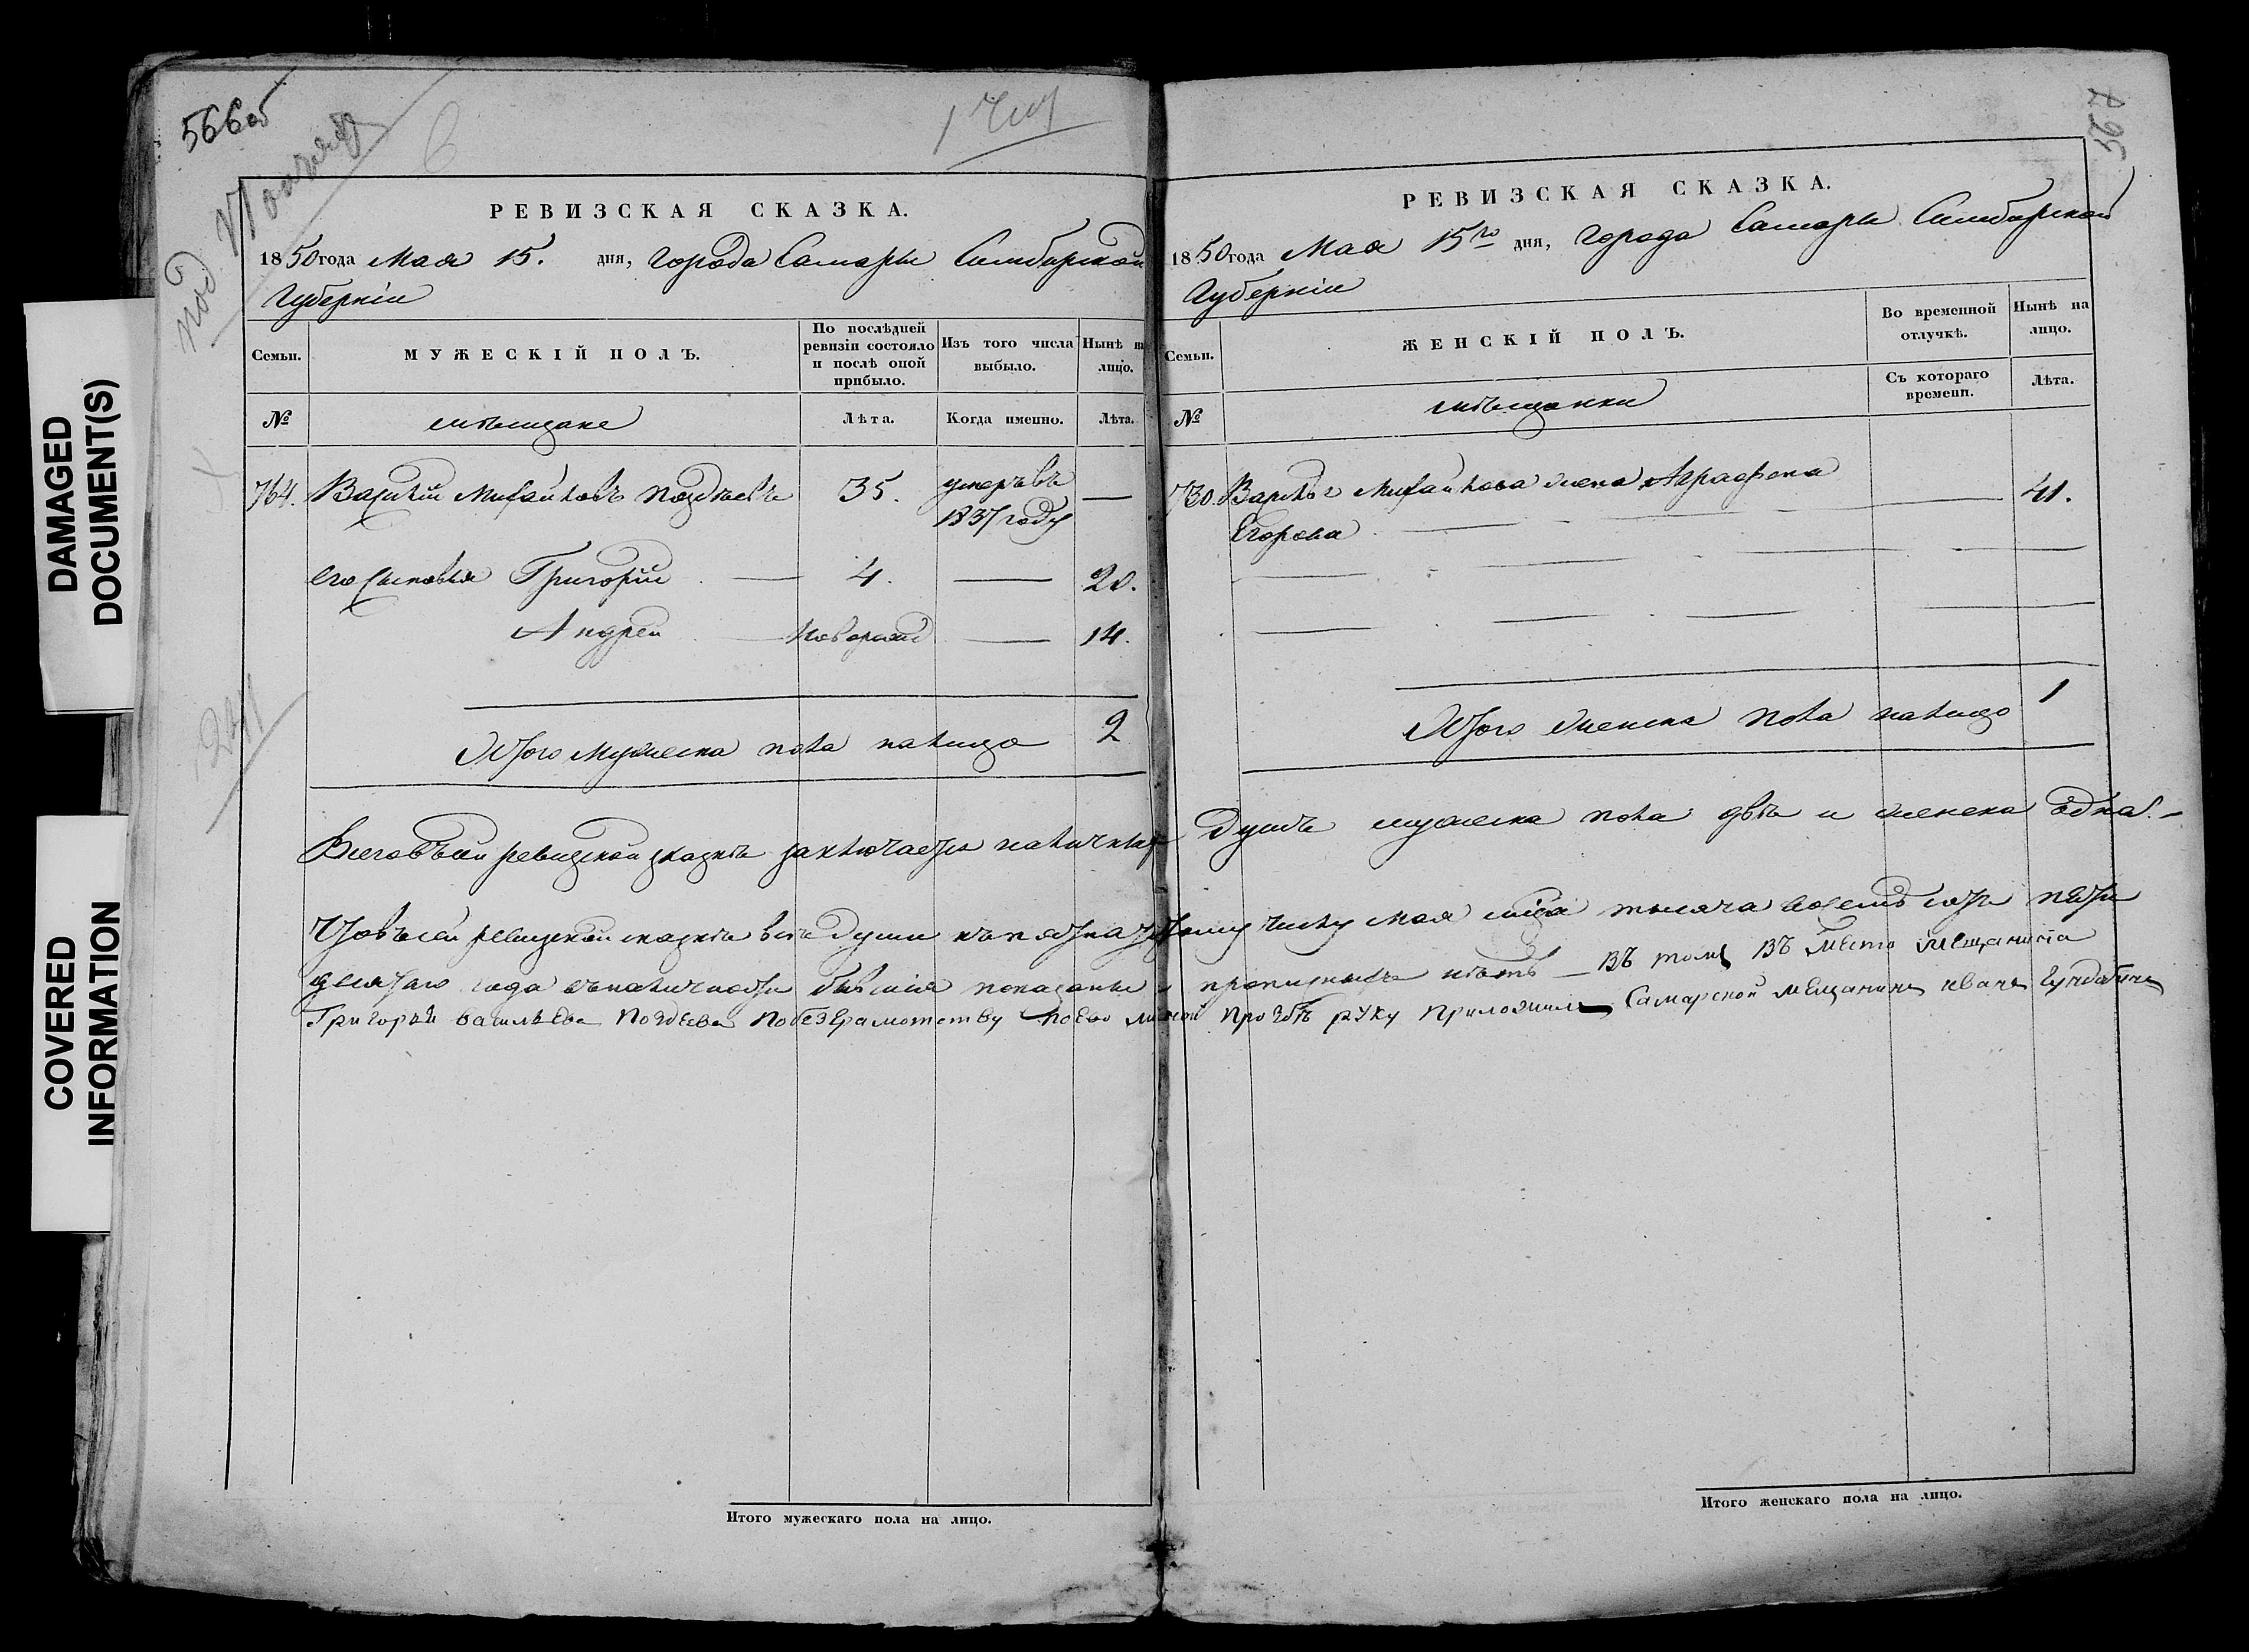 566об
1 Чет
597
под
DAMAGED
DOCUMENT(S)
COVERED
INFORMATION
РЕВИЗСКАЯ СКАЗКА.
1850 года Мая 15. дня, города Самары Симбирской
Губернии
Семьи. МУЖЕСКІЙ ПОЛЪ. По послѣдней ревизіи состояло и послѣ оной прибыло. Изъ того числа выбыло. Нынѣ на лицо.
№ мѣщане Лѣта. Когда именно. Лѣта.
764. Василій Михайловъ Поздѣевъ 35. умеръ въ 1837 году —
его сыновья Григорій — 4. — 20.
Андрей — новорожд — 14.
Итого мужеска пола налицо 2
РЕВИЗСКАЯ СКАЗКА.
1850 года Мая 15го дня, города Самары Симбирской
Губерніи
Семьи. ЖЕНСКІЙ ПОЛЪ. Во временной отлучкѣ. Нынѣ на лицо.
№ мѣщанки Съ котораго времени. Лѣта.
730. Василья Михайлова жена Аграфена — 41.
Егорова
Итого женска пола налицо 1
Всего въ сей ревизской сказкѣ заключается наличныхъ душъ мужеска пола двѣ и женска одна. —
Что въ сей ревизской сказкѣ всѣ души къ пятнадцатому числу мая мѣсяца тысяча восемь сотъ пяти
десятаго года въ наличности бывшія показаны и прописныхъ нѣтъ — въ томъ въ место мещанина
Григорья васильева Поздеева по безграмотству по ево личной прозбѣ руку приложилъ Самарской мещанинъ иванъ
Итого мужескаго пола на лицо.
Итого женскаго пола на лицо.